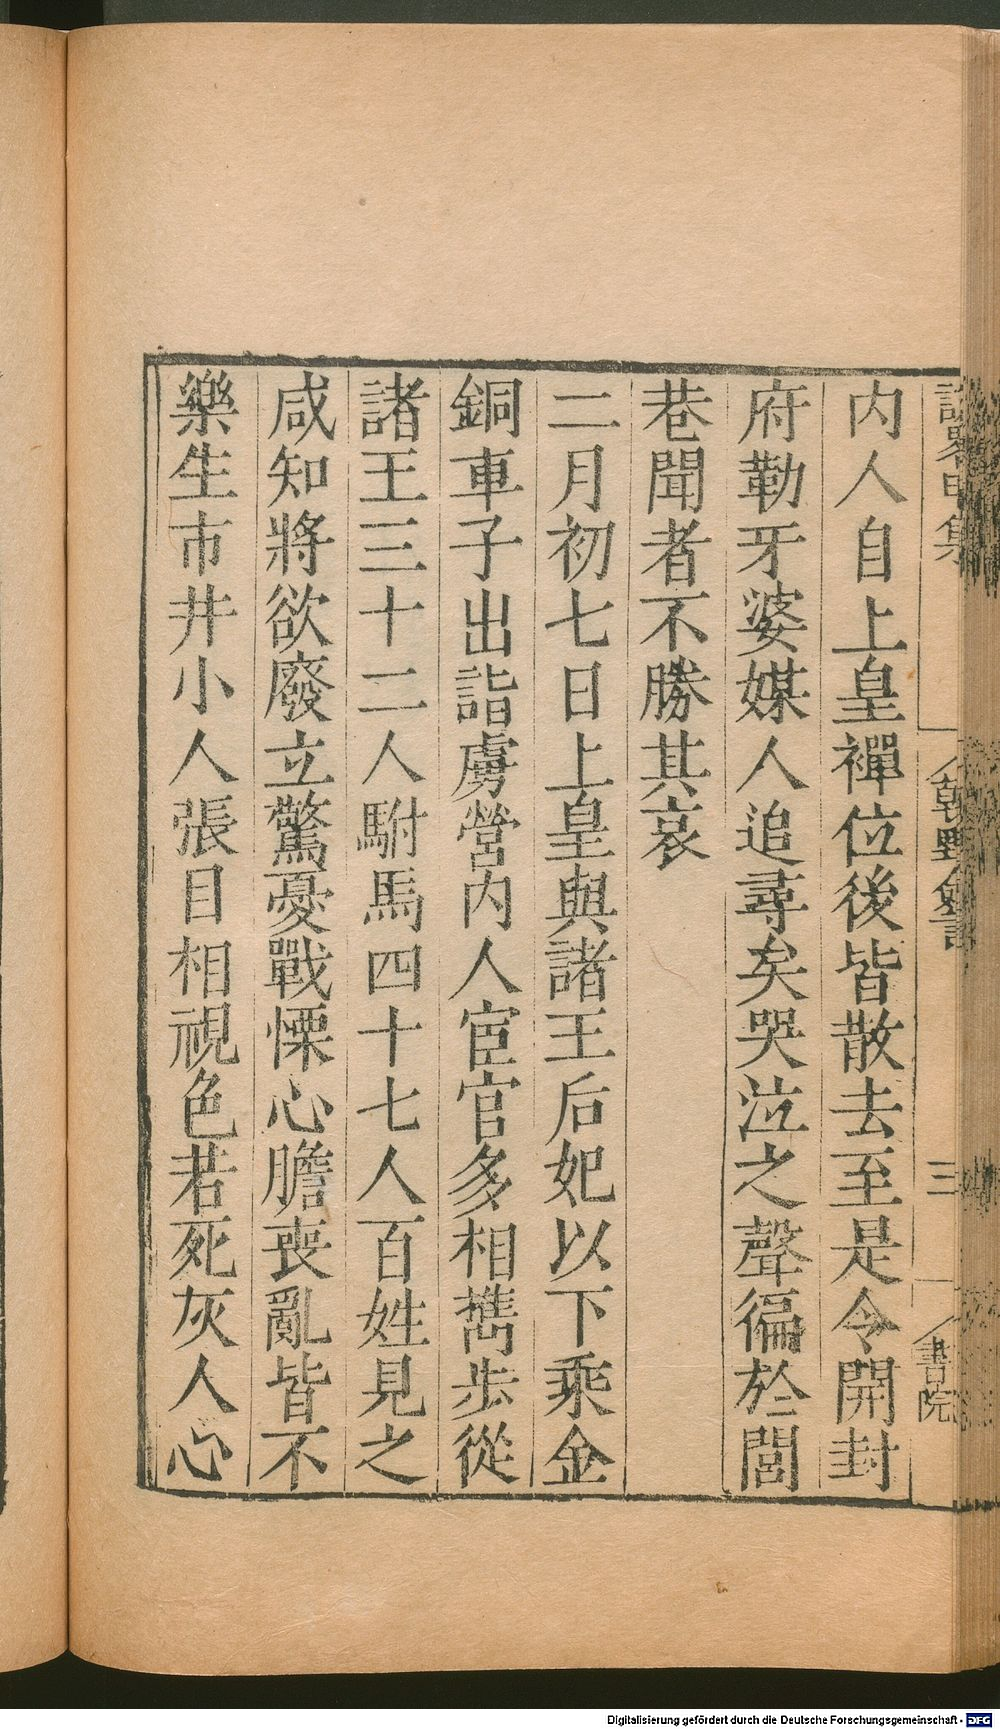 内人自上皇禪位後皆散去至是令開封
府勒牙婆媒人追尋矣哭泣之聲徧於閭
巷聞者不勝其哀
二月初七日上皇與諸王后妃以下乘金
銅車子出詣虜營内人宦官多相擕步從
諸王三十二人駙馬四十七人百姓見之
咸知將欲廢立驚憂戰慄心膽喪亂皆不
樂生市井小人張目相視色若死灰人心
三
書院
Digitalisierung gefördert durch die Deutsche Forschungsgemeinschaft - DFG